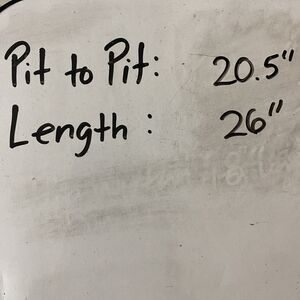 Pit to Pit: 20.5"
Length: 26"